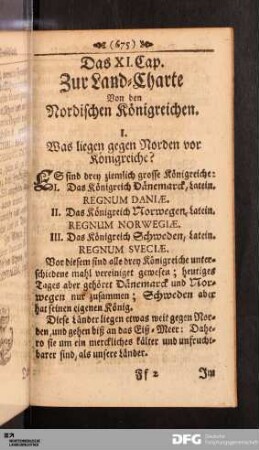 (675)
Das XI. Cap.
Zur Land-Charte
Von den
Nordischen Königreichen.
I.
Was liegen gegen Norden vor
Königreiche?
ES sind drey ziemlich grosse Königreiche:
I. Das Königreich Dänemarck, Latein.
REGNUM DANIÆ.
II. Das Königreich Norwegen, Latein.
REGNUM NORWEGIÆ.
III. Das Königreich Schweden, Latein.
REGNUM SVECIÆ.
Vor diesem sind alle drey Königreiche unter-
schiedene mahl vereiniget gewesen; heutiges
Tages aber gehöret Dänemarck und Nor-
wegen nur zusammen; Schweden aber
hat seinen eigenen König.
Diese Länder liegen etwas weit gegen Nor-
den, und gehen biß an das Eiß-Meer: Dahe-
ro sie um ein merckliches kälter und unfrucht-
barer sind, als unsere Länder.
Ff 2 Im
DFG Deutsche
Forschungsgemeinschaft